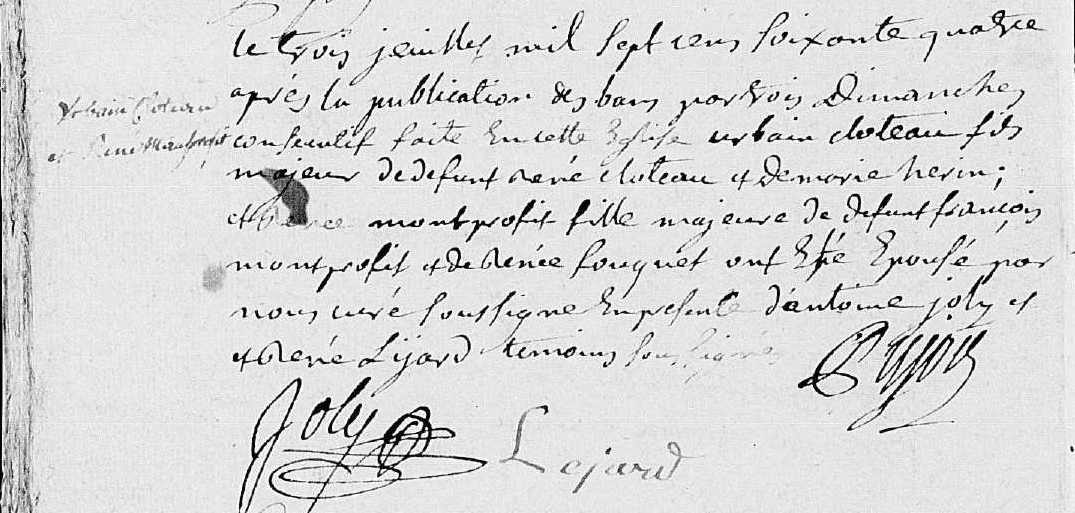 le trois jeuillet mil sept cens soixante quatre
après la publication des bans par trois Dimanches
Urbain Cloteau
et Renée Montprofit
consecutif faite En cette Eglise urbain cloteau fils
majeur de defunt René cloteau et de marie herin;
et Renee montprofit fille majeure de defunt françois
montprofit et de Renée fouquet ont Eté Epousé par
nous curé soussigne En presence d'antoine joly et
et René Lijard temoins soussignés
Joly
Lejard